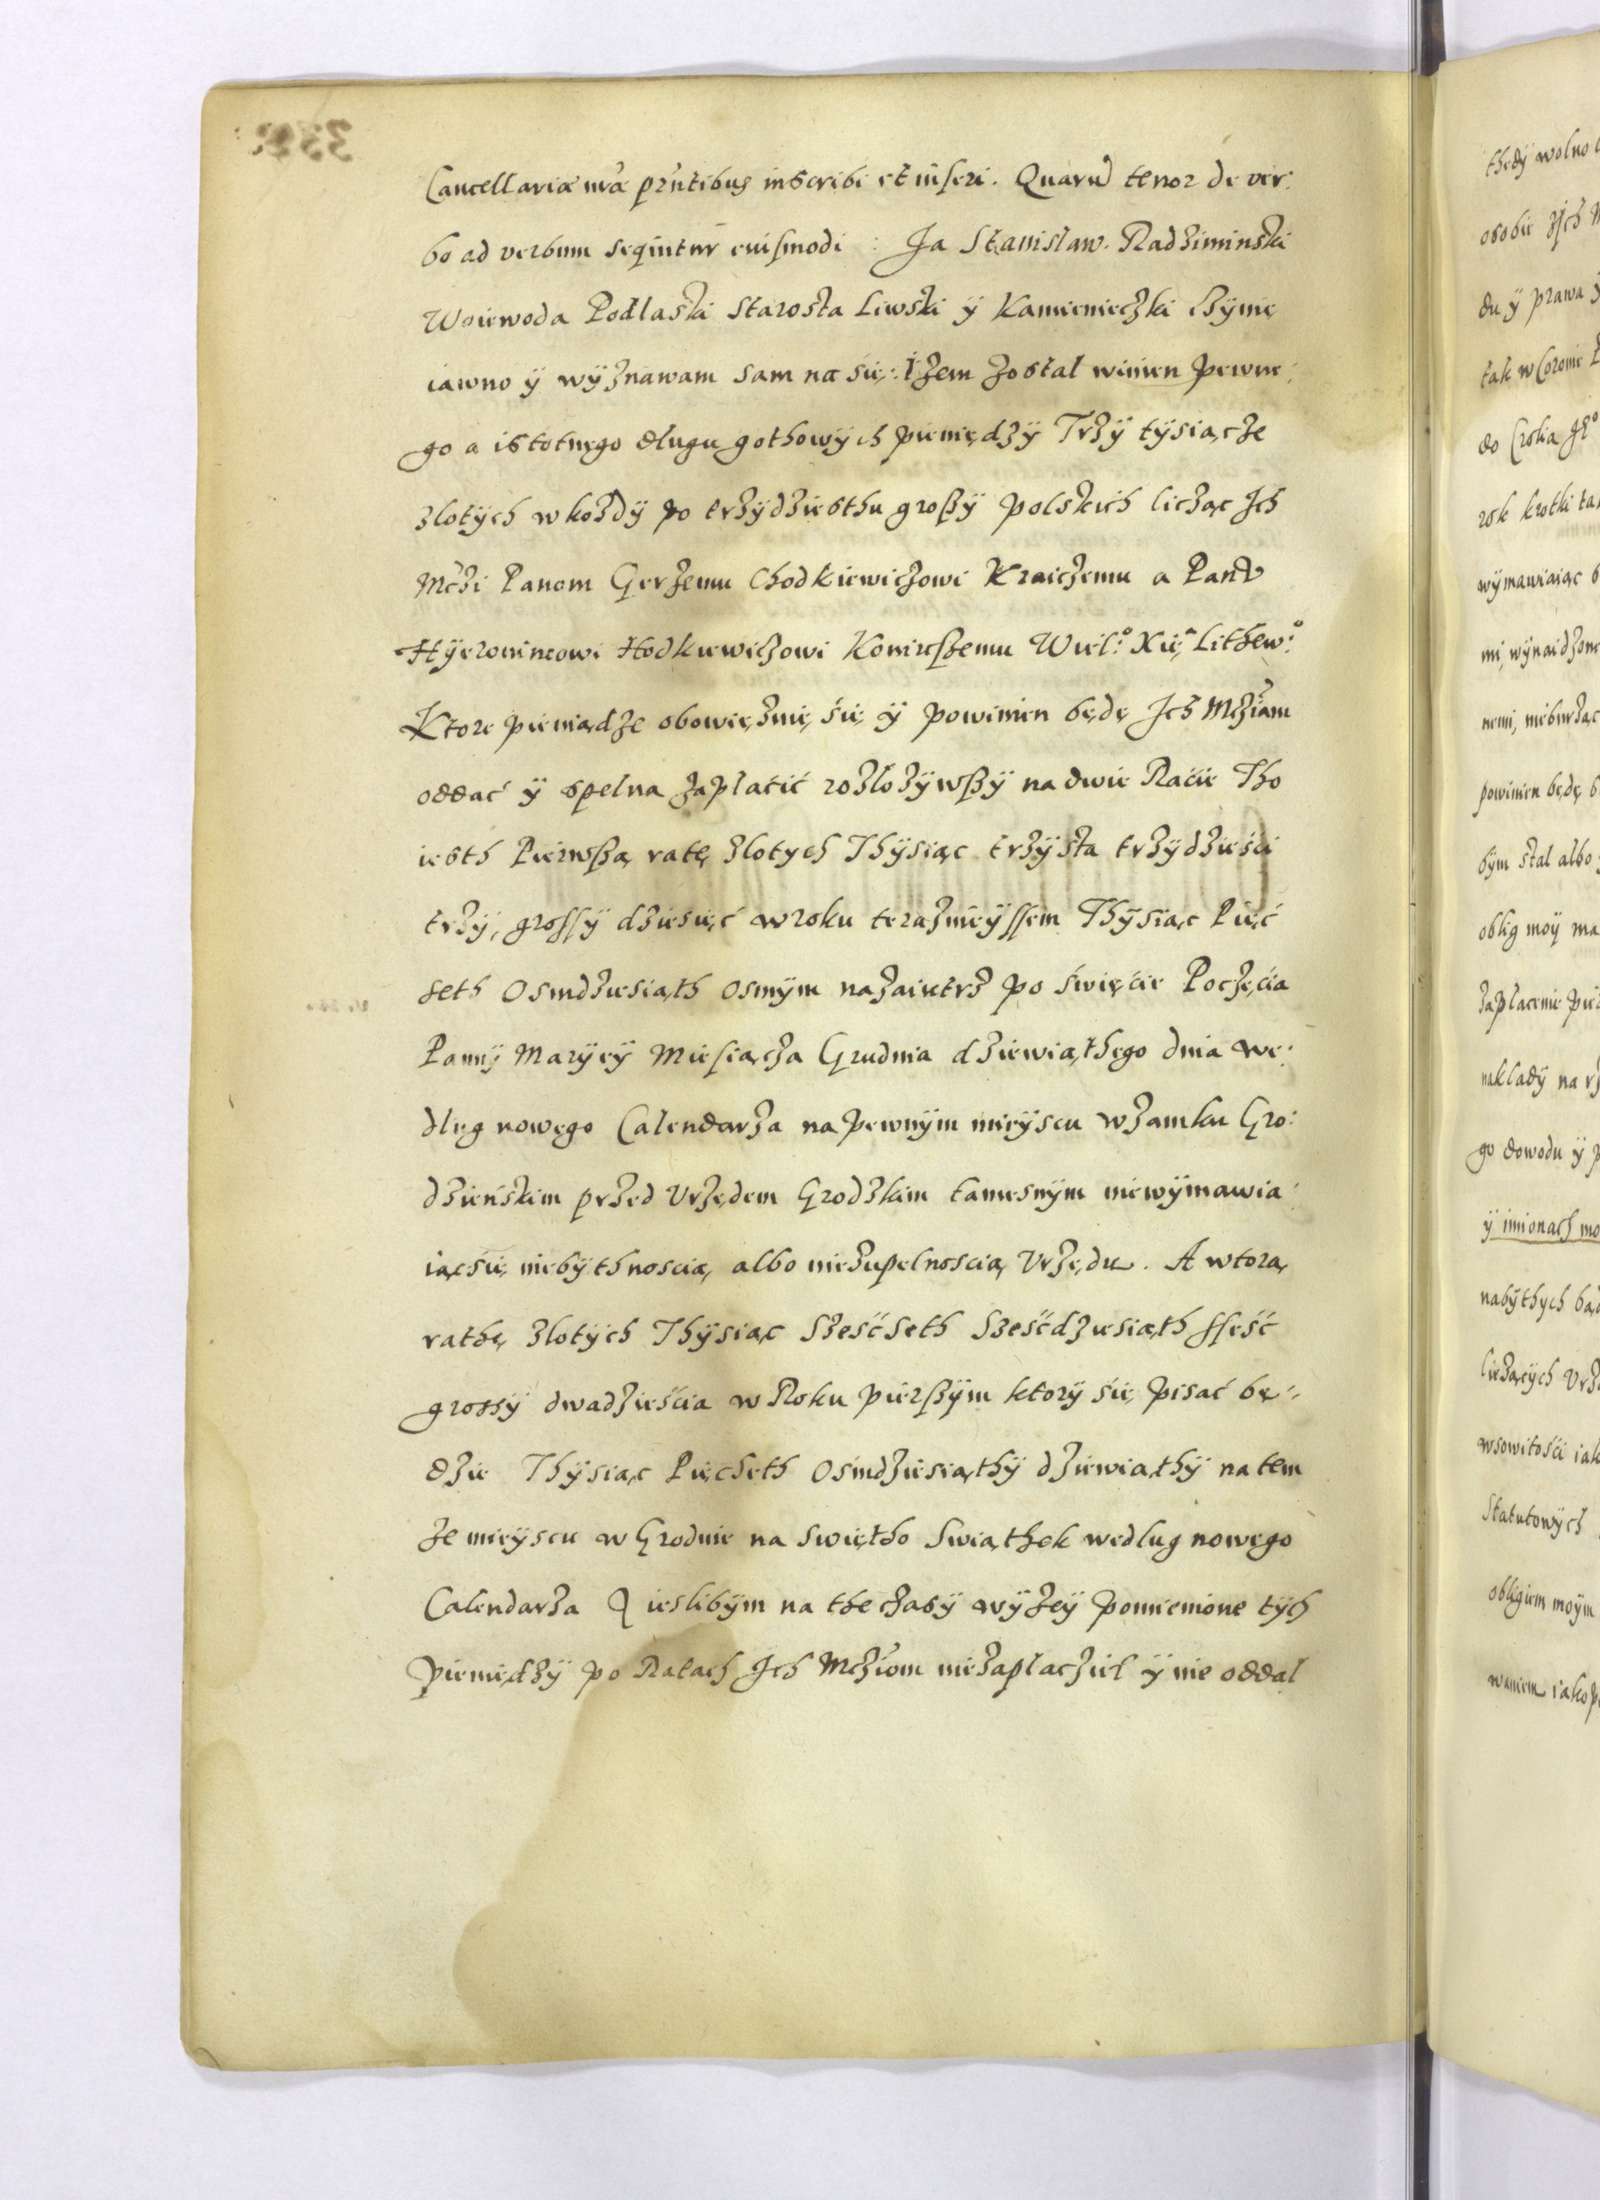 Cancellariæ nræ prntibus inscribi et inseri. Quaru tenor de ver:
bo ad verbum sequitur euismodi : Ja Stanislaw Radziminski
Woiewoda Podlaski Starosta Liwski ÿ Kamienieczki Czÿnię
iawno ÿ wÿznawam sam na się: Iżem został winien pewne:
go a istotnego długu gothowÿch pieniędzÿ Trzÿ tÿsiącze
zlotÿch w kożdÿ po trzÿdziesthu großÿ polskich licząc Jch
Mczi Panom Gerzemu Chodkiewiczowi Kraiczemu a Panu
Hÿeronimowi Hodkiewiczowi Koniußemu Wiel: Xię Lithew:
Ktore pieniądze obowięznię się ÿ powinien będę Jch Mcziam
oddać ÿ spelna zaplatić rozlożÿwßÿ na dwie Racie Tho
iesth Pierwßą ratę zlotych Thÿsiąc trzÿsta trzÿdzieści
trzÿ, grossÿ dziesięć w roku teraznieÿssem Thÿsiąc Pięć
seth Osmdziesiąth osmÿm nazaiutrz po święcie Poczęcia
Pannÿ Marÿeÿ Miesiącza Grudnia dziewiąthego dnia we:
dlug nowego Calendarza na pewnÿm mieÿscu w zamku Gro:
dzieńskim przed Urzędem Grodzkim tamesnÿm niewÿmawia:
iąc się niebÿthnoscią albo niezupelnoscią Urzędu. A wtorą
rathę zlotÿch Thÿsiąc Sześćseth Sześćdziesiąth sseść
grossÿ dwadzieścia w Roku pierßÿm ktorÿ się pisać bę:
dzie Thÿsiąc Pięcseth Osmdziesiąthÿ dziewiąthÿ na tem
że mieÿscu w Grodnie na swiętho Swiąthek wedlug nowego
Calendarza A ieslibÿm na the czasÿ wÿżeÿ pomienione tÿch
pieniędzÿ po Ratach Jch Mcziom niezaplacziel ÿ nie oddal
thedÿ wolno
osobie
du ÿ prawa
tak w Coronie
do
rok krotki
wÿmawiaiąc
mi, wÿnaidzone
powinien będę
bÿm stal albo
oblig moÿ
zaplacenie
nakladÿ na
go dowodu ÿ
ÿ imionach
nabÿthych
wsowitości iak
Statutowÿch
obligiem moÿm